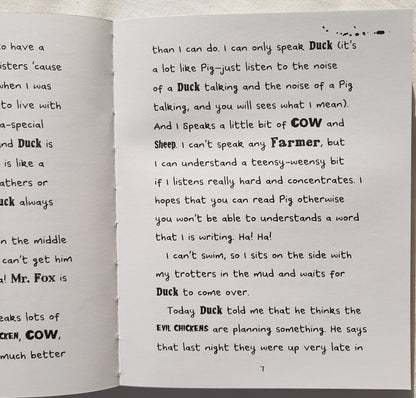 to have a
isters 'cause
when I was
to live with
a-special
nd Duck is
is like a
athers or
uck always
n the middle
can't get him
a! Mr. Fox is
eaks lots of
CKEN, COW,
much better
than I can do. I can only speak Duck (it's
a lot like Pig—just listen to the noise
of a Duck talking and the noise of a Pig
talking, and you will sees what I mean).
And I speaks a little bit of COW and
Sheep. I can't speak any Farmer, but
I can understand a teensy-weensy bit
if I listens really hard and concentrates. I
hopes that you can read Pig otherwise
you won't be able to understands a word
that I is writing. Ha! Ha!
I can't swim, so I sits on the side with
my trotters in the mud and waits for
Duck to come over.
Today Duck told me that he thinks the
EVIL CHICKENS are planning something. He says
that last night they were up very late in
7